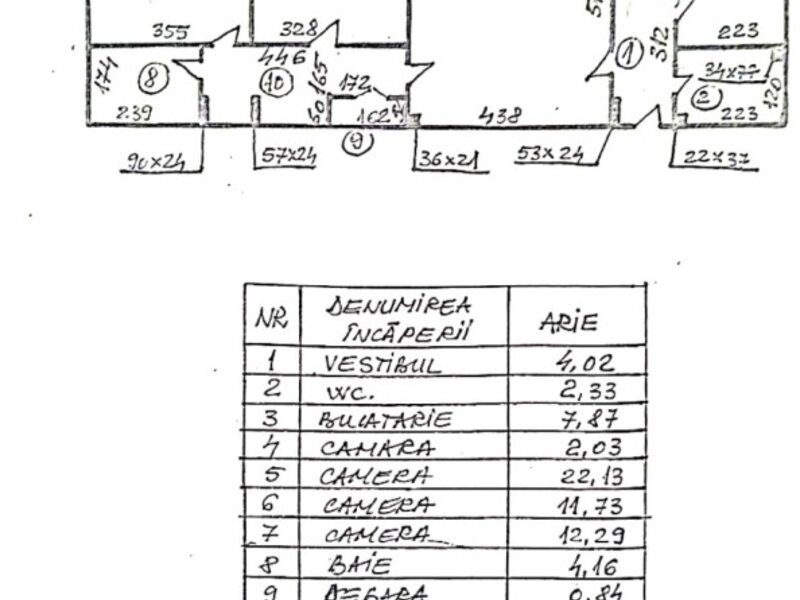 355
328
223
446
174
8
10
165
172
1
312
34x77
2
120
239
50
162
438
223
9
90x24
57x24
36x21
53x24
22x37
NR DENUMIREA ÎNCĂPERII ARIE
1 VESTIBUL 4,02
2 WC. 2,33
3 BUCATARIE 7,87
4 CAMARA 2,03
5 CAMERA 22,13
6 CAMERA 11,73
7 CAMERA 12,29
8 BAIE 4,16
9 DEBARA 0,84